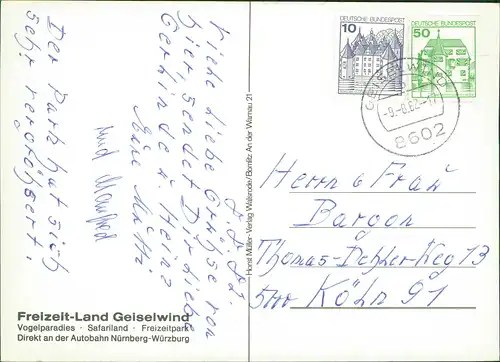 Viele liebe Grüße von
hier sendet Dir liebe
Gerlinde u. Heinz
Eure Mutti
und Manfred
Der Park hat sich
sehr vergrößert.
Freizeit-Land Geiselwind
Vogelparadies · Safariland · Freizeitpark
Direkt an der Autobahn Nürnberg-Würzburg
Horst Müller-Verlag Walsrode/Bomlitz An der Warnau 21
10 DEUTSCHE BUNDESPOST
DEUTSCHE BUNDESPOST
50
GEISELWIND
8602
Herrn u. Frau
Bargon
Thomas-Dehler-Weg 13
5000 Köln 91